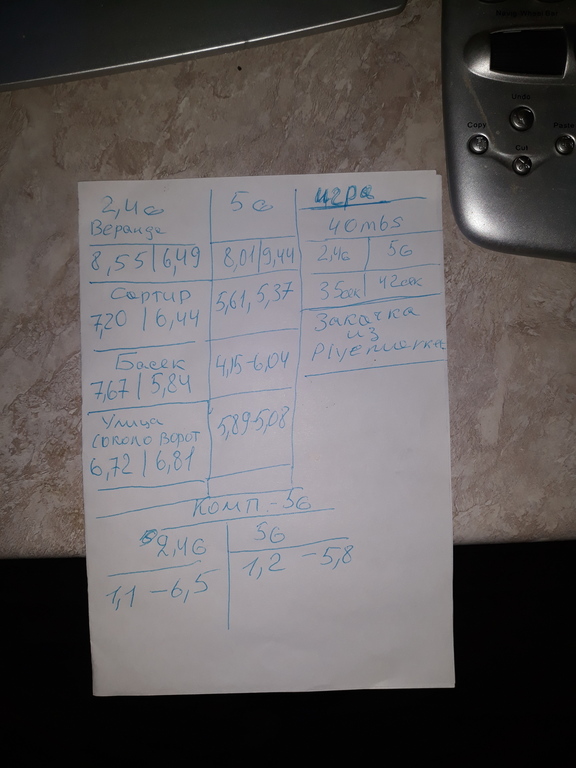 Undo
Copy
Paste
Cut
2,4G
5G
Веранда
8,55 | 6,49
8,01 | 9,44
Сортир
7,20 | 6,44
5,61, 5,37
Басек
7,67 | 5,84
4,15-6,04
Улица
(около ворот
6,72 | 6,81
5,89-5,08
игра
40mbs
2,4G | 5G
35сек | 42сек
Закачка
из
Комп.-5G
2,4G
5G
1,1 - 6,5
1,2 - 5,8